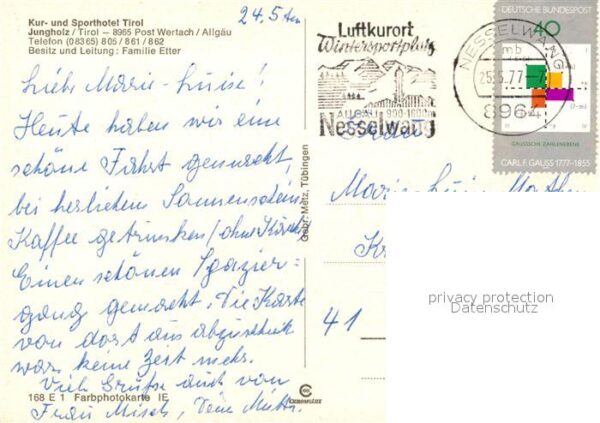 Kur- und Sporthotel Tirol
Jungholz / Tirol — 8965 Post Wertach / Allgäu
Telefon (08365) 805 / 861 / 862
Besitz und Leitung: Familie Etter
24.5ten
Liebe Marie-Luise!
Heute haben wir eine
schöne Fahrt gemacht,
bei herlichem Sonnenschein
Kaffee getrunken / ohne
Einen schönen Spazier=
gang gemacht. Die Karte
von dort aus abzuschick
war keine Zeit mehr.
Viele Grüße auch von
Frau Misch, Deine Mutti
168 E 1 Farbphotokarte IE
Gebr. Metz, Tübingen
Luftkurort
Wintersportplatz
ALLGÄU 900-1600m
Nesselwang
NESSELWANG
mb
25.5.77-7
8964
DEUTSCHE BUNDESPOST
40
GAUSSSCHE ZAHLENEBENE
CARL F. GAUSS 1777-1855
Frau
Marie-Luise Math
Kr
41
privacy protection
Datenschutz